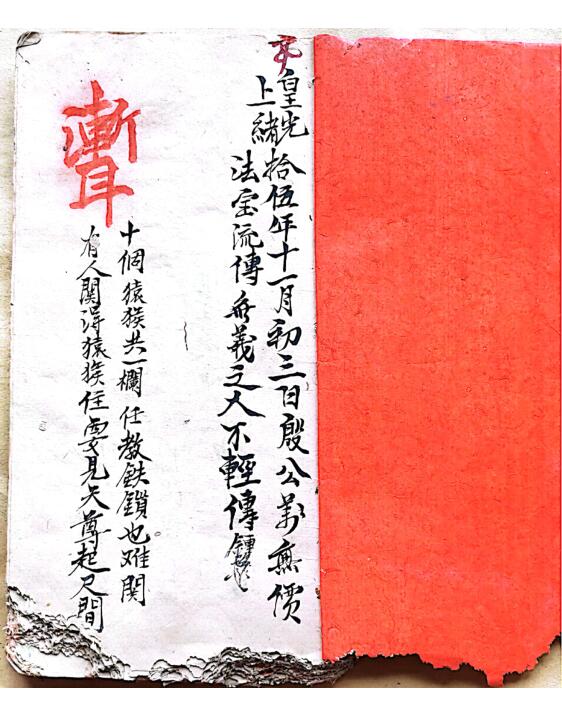 皇上
光緒
拾伍年十一月初三日殷公無價
法宝流傳無義之人不輕傳
十個猿猴共一欄任教鉄鎖也难関
有人関得猿猴住要見天尊起尺間
漸耳